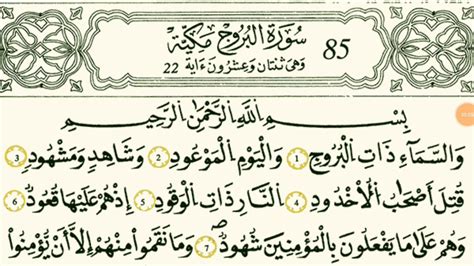 سُورَةُ الْبُرُوجِ مَكِّيَّةٌ 85
وَهِيَ ثِنْتَانِ وَعِشْرُونَ ءَايَةً 22
بِسْمِ اللَّهِ الرَّحْمَٰنِ الرَّحِيمِ
وَالسَّمَآءِ ذَاتِ الْبُرُوجِ 1 وَالْيَوْمِ الْمَوْعُودِ 2 وَشَاهِدٍ وَمَشْهُودٍ 3
قُتِلَ أَصْحَابُ الْأُخْدُودِ 4 النَّارِ ذَاتِ الْوَقُودِ 5 إِذْ هُمْ عَلَيْهَا قُعُودٌ 6
وَهُمْ عَلَىٰ مَا يَفْعَلُونَ بِالْمُؤْمِنِينَ شُهُودٌ 7 وَمَا نَقَمُوا مِنْهُمْ إِلَّا أَنْ يُؤْمِنُوا